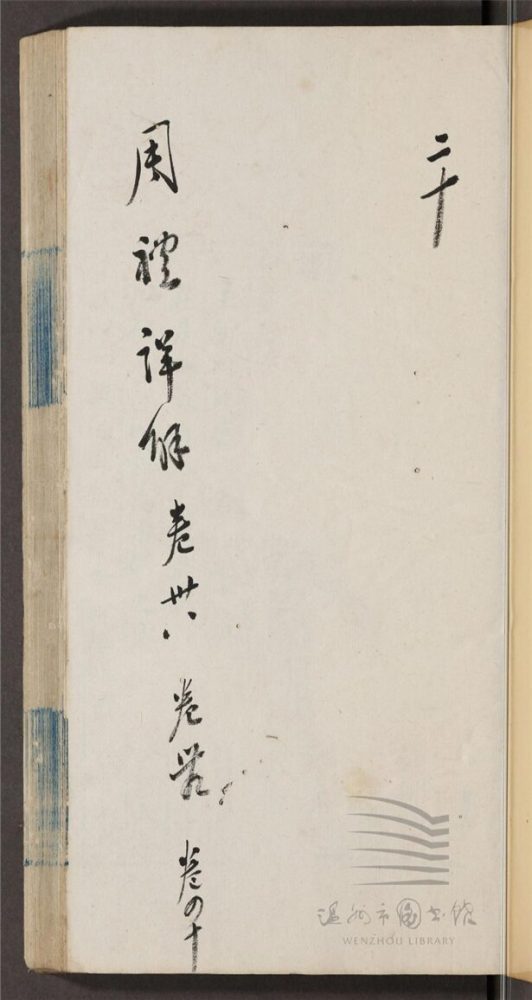 二十
周禮詳解卷卅八 卷卅九 卷四十
温州市图书馆
WENZHOU LIBRARY